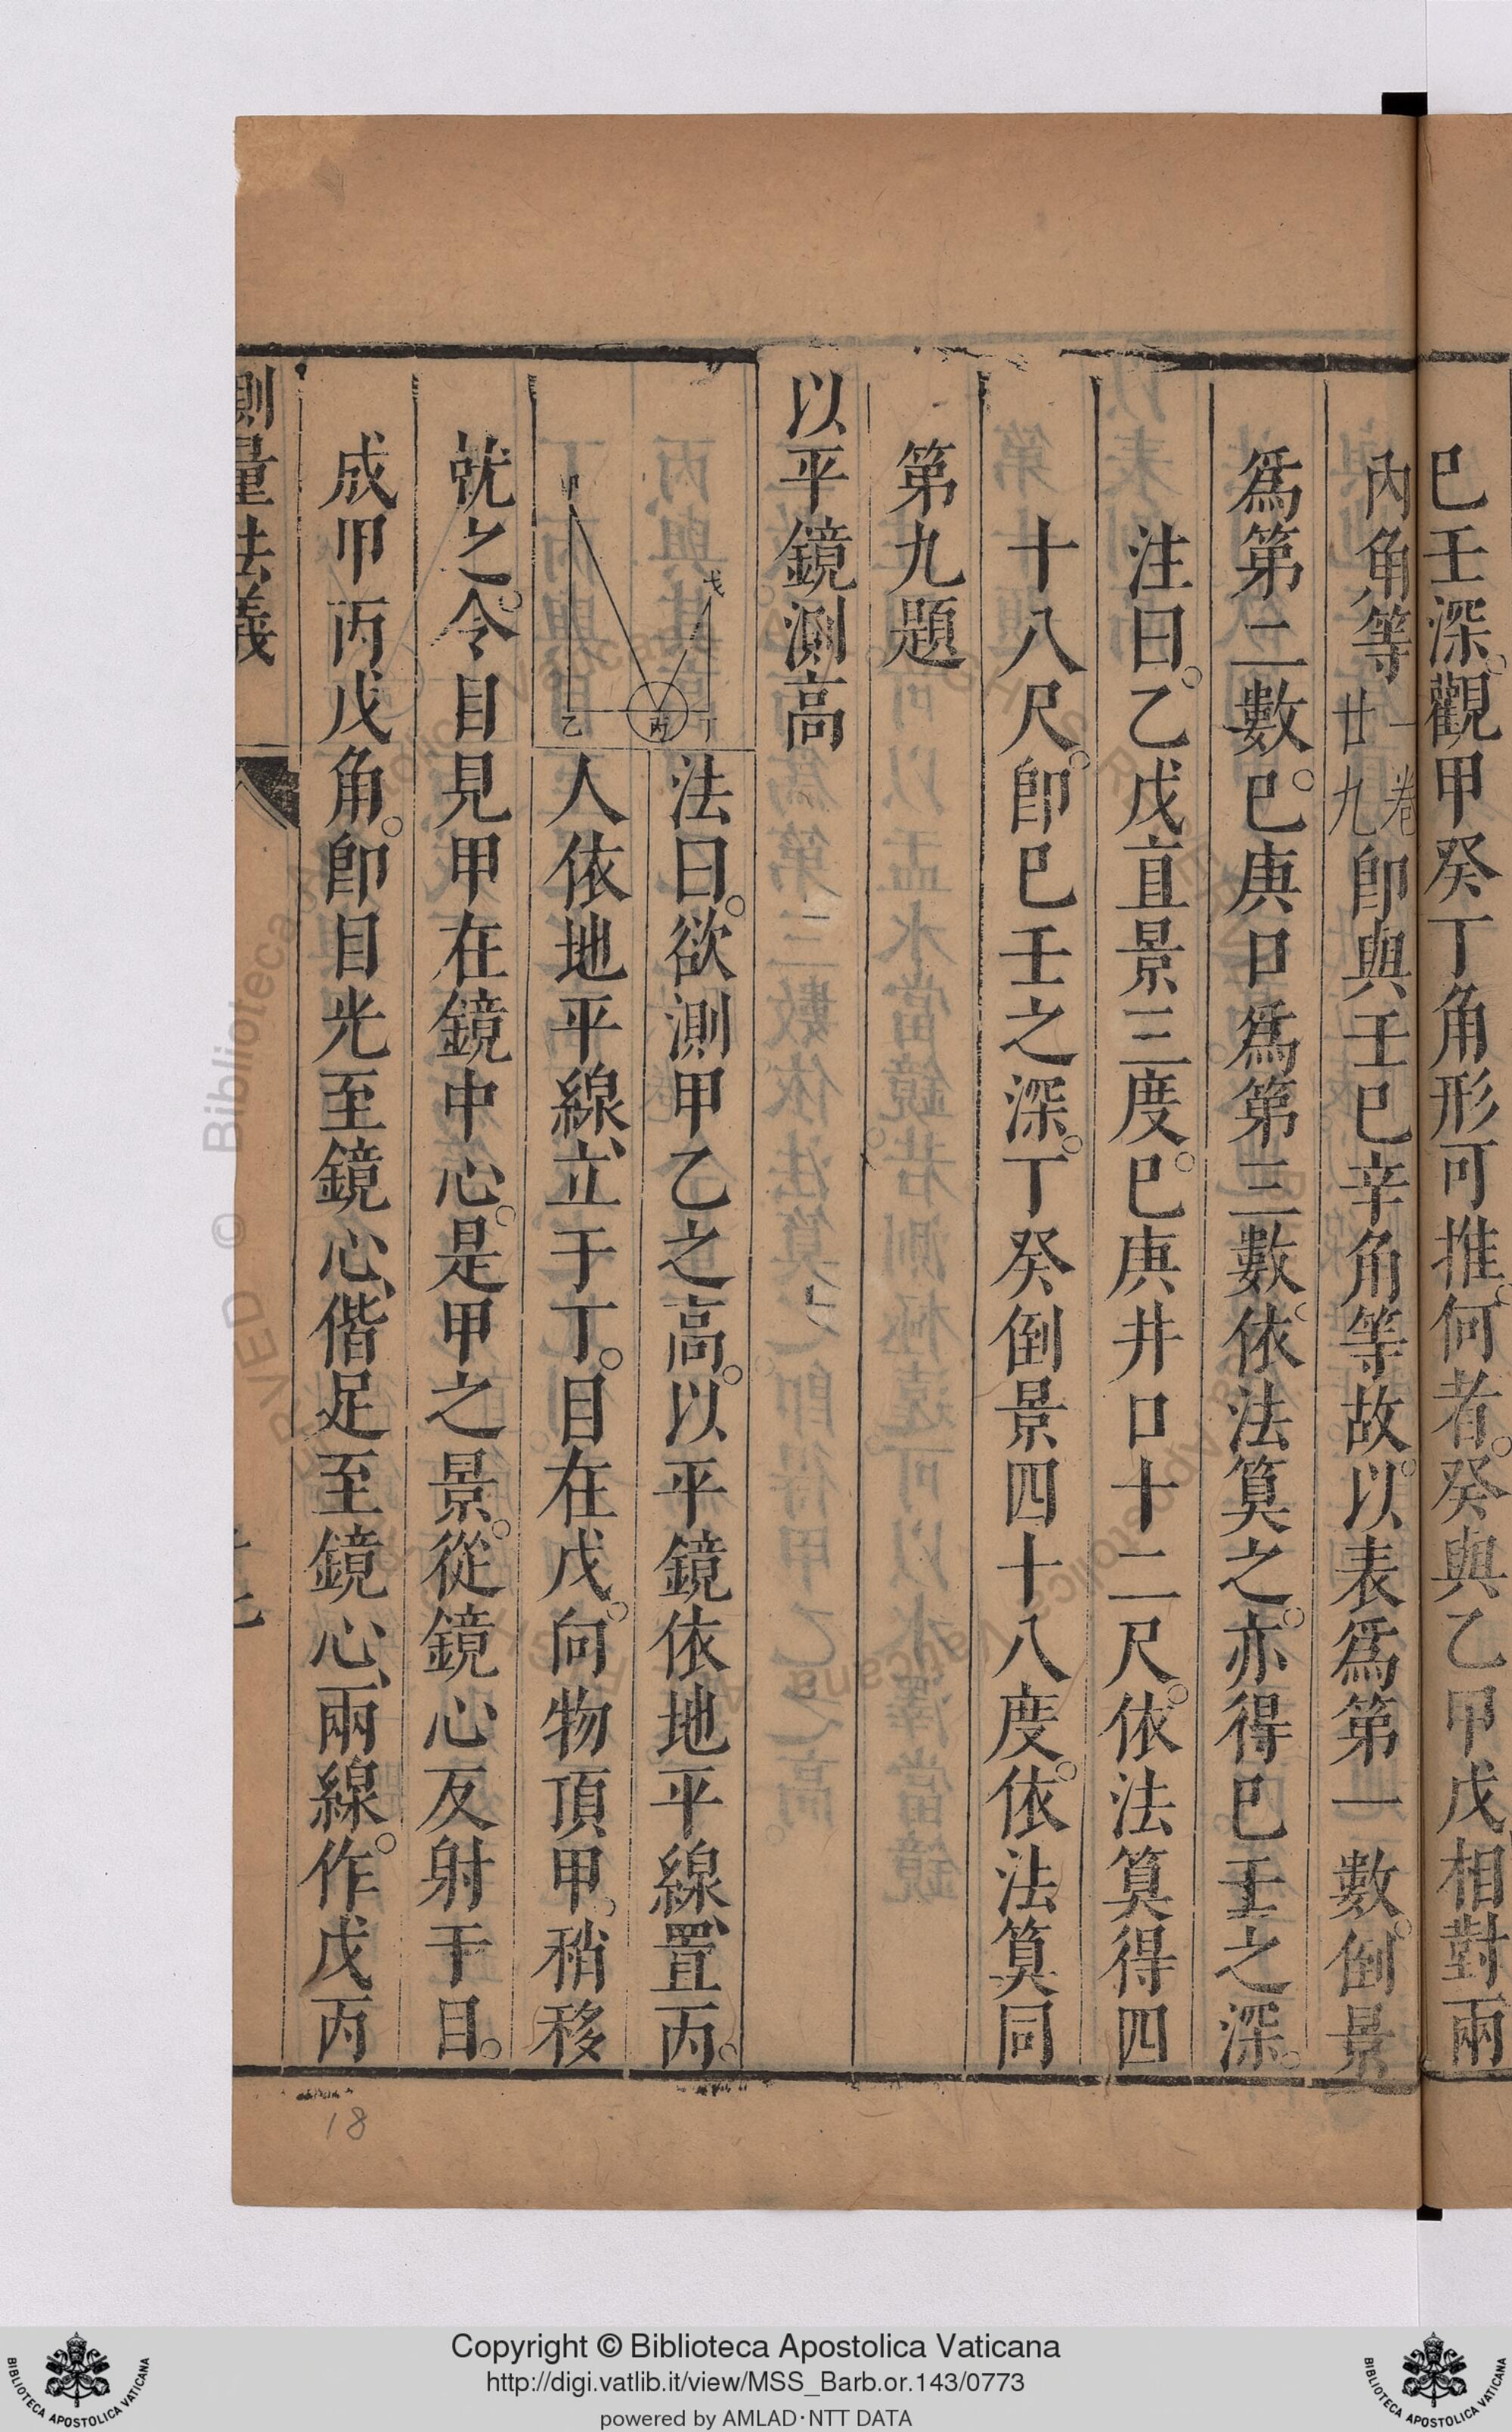 巳壬深。觀甲癸丁角形可推。何者。癸與乙甲戊相對兩
內角等一卷廿九卽與壬巳辛角等故。以表爲第一數。倒景
爲第二數。巳庚口爲第三數。依法算之。亦得巳壬之深。
注曰。乙戊直景三度。巳庚井口十二尺。依法算得四
十八尺。卽巳壬之深。丁癸倒景四十八度。依法算同
第九題
以平鏡測高
甲
戊
乙
丙
丁
法曰。欲測甲乙之高。以平鏡依地平線、置丙。
人依地平線、立于丁。目在戊。向物頂甲。稍移
就之。令目見甲在鏡中心。是甲之景。從鏡心反射于目。
成甲丙戊角。卽目光至鏡心、偕足至鏡心、兩線。作戊丙
測量法義
18
© Biblioteca Apostolica Vaticana
Copyright © Biblioteca Apostolica Vaticana
http://digi.vatlib.it/view/MSS_Barb.or.143/0773
powered by AMLAD·NTT DATA
BIBLIOTECA APOSTOLICA VATICANA
BIBLIOTECA APOSTOLICA VATICANA